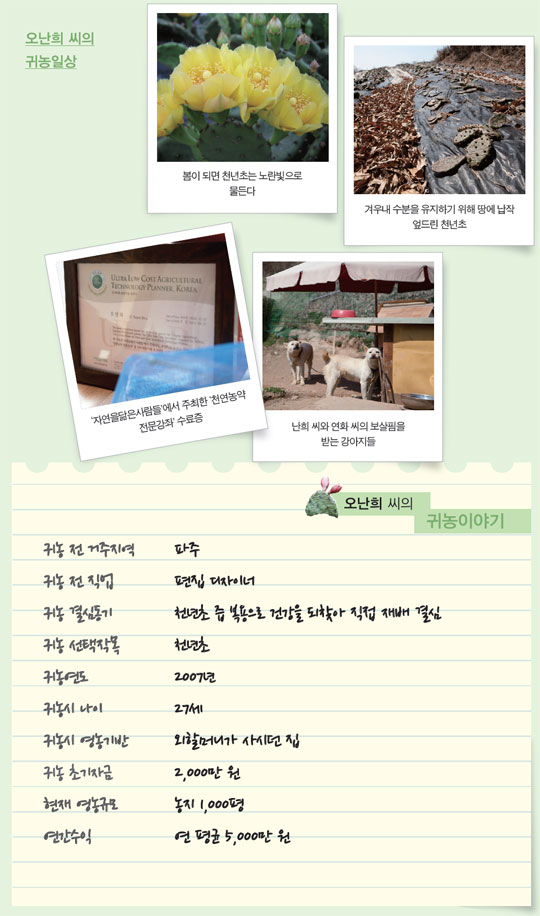 오난희 씨의
귀농일상
봄이 되면 천년초는 노란빛으로
물든다
겨우내 수분을 유지하기 위해 땅에 납작
엎드린 천년초
ULTRA LOW COST AGRICULTURAL
TECHNOLOGY PLANNER, KOREA
'자연을닮은사람들'에서 주최한 '천연농약
전문강좌' 수료증
난희 씨와 연화 씨의 보살핌을
받는 강아지들
오난희 씨의
귀농이야기
귀농 전 거주지역 파주
귀농 전 직업 편집 디자이너
귀농 결심동기 천년초 즙 복용으로 건강을 되찾아 직접 재배 결심
귀농 선택작목 천년초
귀농연도 2007년
귀농시 나이 27세
귀농시 영농기반 외할머니가 사시던 집
귀농 초기자금 2,000만 원
현재 영농규모 농지 1,000평
연간수익 연 평균 5,000만 원